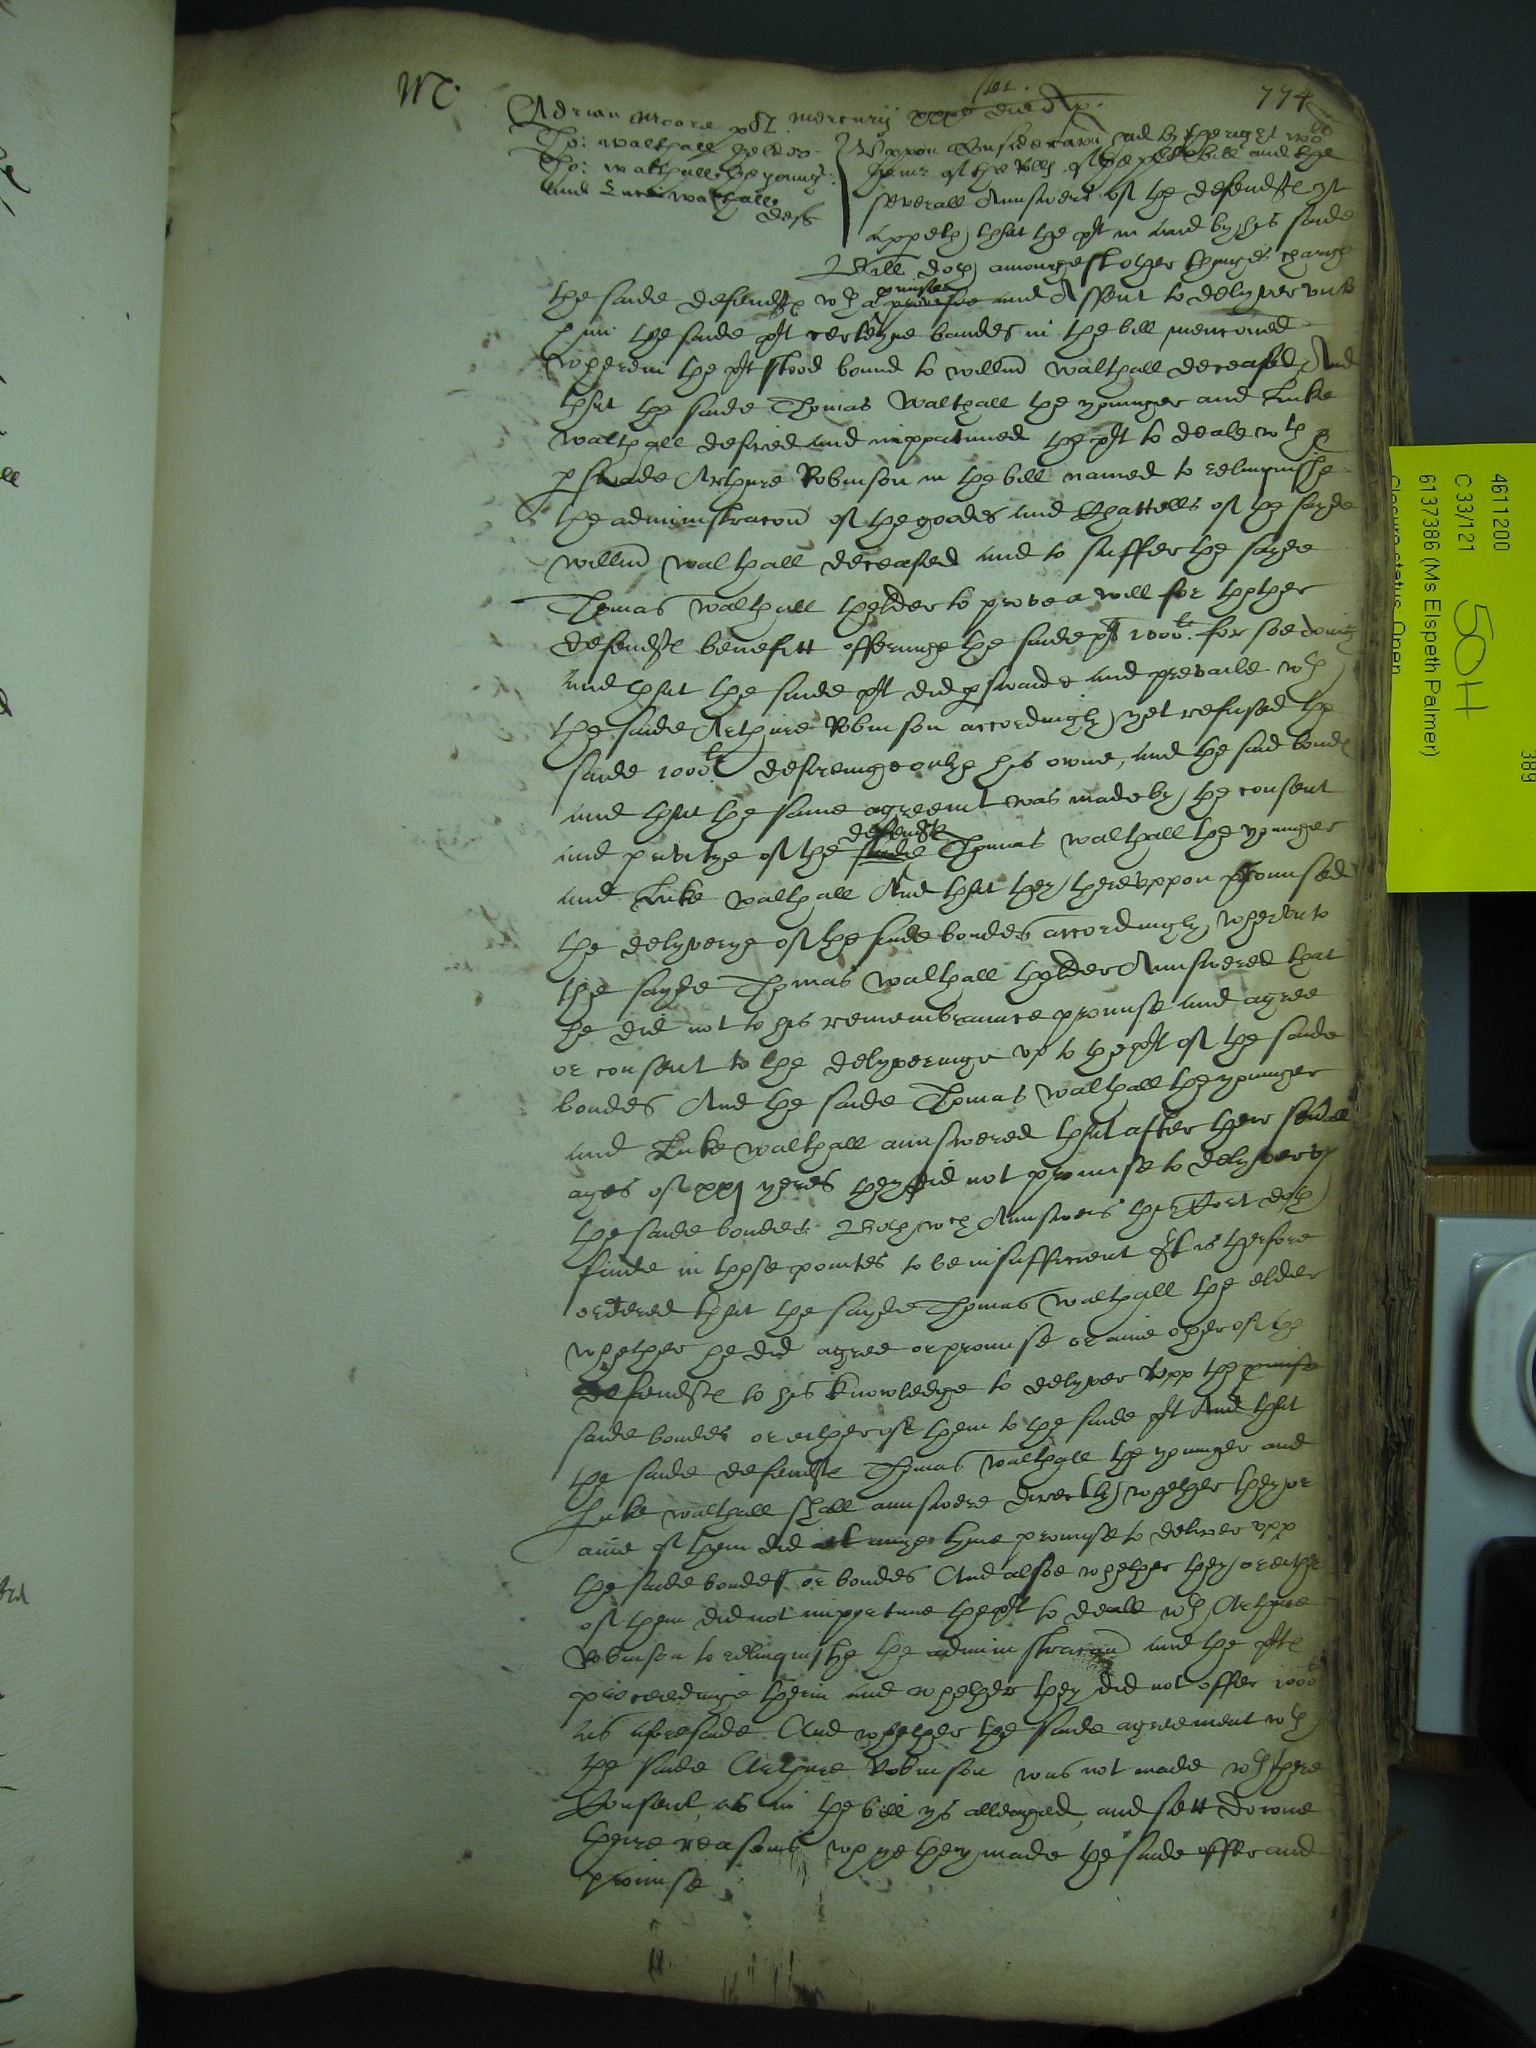 774
M
Adrian Moore plt mercurij xxx die Ap.
Tho: walthall thelder
Tho: walthall the young:
and Luke walthall
defts
Uppon Consideracon had by the right wo:ll
the mr of the Rolls of the plts bill and the
severall Aunswers of the defendtes yt
appeth that the plt in and by his saide
Bill doth amongest other thynges chardge
the saide defendtes wth a promise and Assent to delyver unto
him the saide plt certeyne bondes in the bill mencioned
wherein the plt stood bound to willm walthall deceased, And
that the saide Thomas Walthall the younger and Luke
walthall desired and importuned the plt to deale wth &
pswade Arthure Robinson in the bill named to relinquishe
the administracon of the goodes and Chattells of the sayde
willm walthall deceased and to suffer the sayde
Thomas walthall thelder to prove a will for thother
defendtes benefitt offeringe the saide plt 1000li for soe doing
and that the saide plt did pswade and prevaile wth
the saide Arthure Robinson accordingly, yet refused the
saide 1000li desireinge onlye his owne, and the said bondes
and that the same agreemt was made by the consent
and privitye of the saide defendtes Thomas walthall the younger
and Luke walthall And that they thereuppon promised
the delyverye of the saide bondes accordingly, wherunto
the sayde Thomas walthall thelder Aunswered that
he did not to his remembraunce promise and agree
or consent to the delyveringe up to the plt of the saide
bondes And the saide Thomas walthall the younger
and Luke walthall aunswered that after their severall
ages of xxj yeres they did not promise to delyver up
the saide bondes Both wch Aunswers this Court doth
finde in those pointes to be insufficient It is therfore
ordered that the sayde Thomas walthall the elder
whether he did agree or promise or anie other of the
defendtes to his knowledge to delyver upp the
saide bondes or either of them to the saide plt And that
the saide defendtes Thomas walthall the younger and
Luke walthall shall aunswere directly whether they or
anie of them did at anye tyme promyse to deliver upp
the saide bondes or bondes And alsoe whether they or either
of them did not importune the plt to deale wth Arthure
Robinson to relinquishe the administracon and the plts
proceedinge therin and whether they did not offer 1000li
as aforesaide And whether the saide agreement wth
the saide Arthure Robinson was not made wth there
Consent, as in the bill ys alleaged, and sett downe
theire reasons whye they made the saide offer and
promise
4611200
C 33/121
6137386 (Ms Elspeth Palmer)
Closure status: Open
50H
389